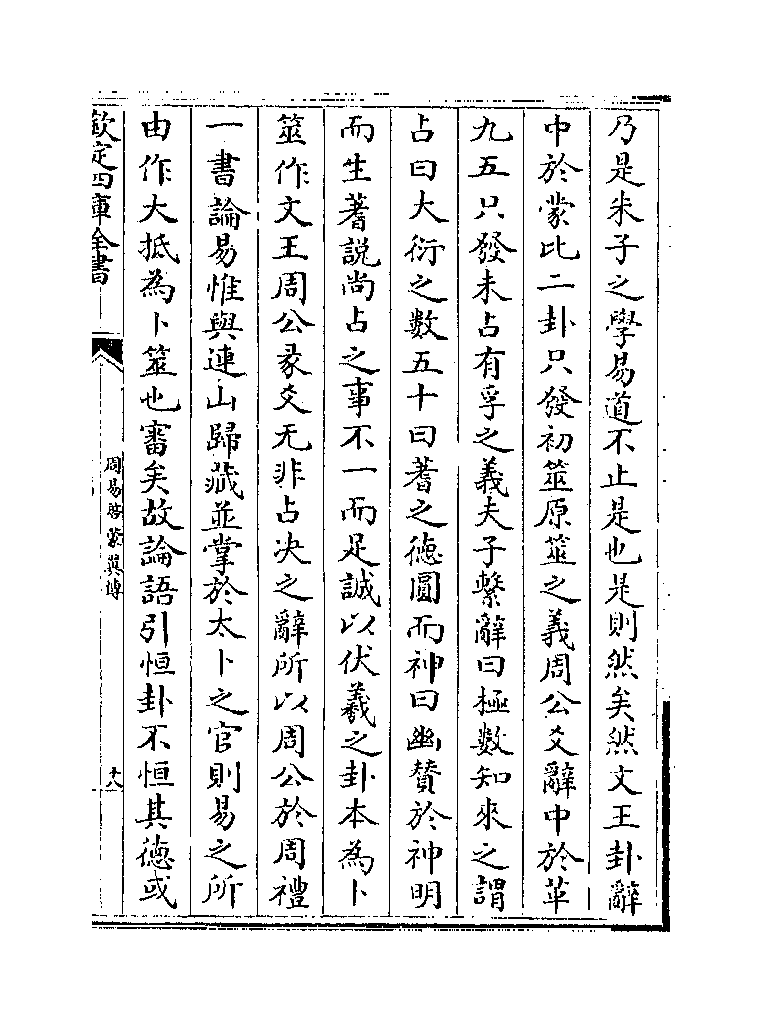 乃是朱子之學易道不止是也是則然矣然文王卦辭
中於蒙比二卦只發初筮原筮之義周公爻辭中於革
九五只發未占有孚之義夫子繫辭曰極數知來之謂
占曰大衍之數五十曰蓍之德圓而神曰幽賛於神明
而生蓍說尚占之事不一而足誠以伏羲之卦本為卜
筮作文王周公彖爻无非占决之辭所以周公於周禮
一書論易惟與連山歸藏並掌於太卜之官則易之所
由作大抵為卜筮也審矣故論語引恒卦不恒其德或
欽定四庫全書
周易啓蒙翼傳
十八